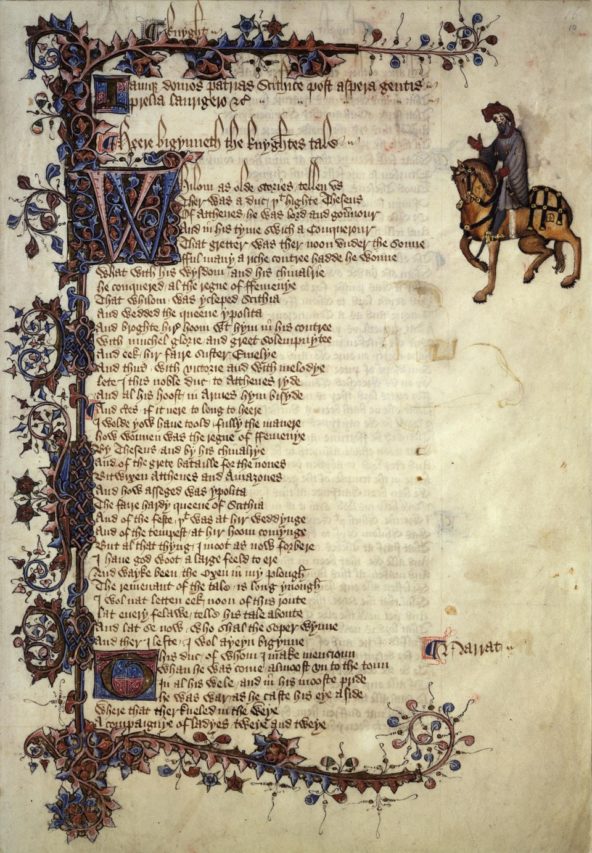 Knyght
Iamque domos patrias Scithice post aspera gentis
prelia laurigero &c
Heere bigynneth the knyghtes tale
Whilom as olde stories tellen vs
Ther was a duc þt highte Theseus
Of Atthenes he was lord and gouernour
And in his tyme swich a Conquerour
That gretter was ther noon vnder the sonne
fful many a riche contree hadde he wonne
What with his wysdom and his chiualrie
he conquered al the regne of ffemenye
That whilom was ycleped Scithia
And wedded the queene ypolita
And broghte hir hoom with hym in his contree
With muchel glorie and greet solempnytee
And eek hir faire suster Emelye
And thus with victorie and with melodye
lete I this noble duc to Atthenes ryde
And al his hoost in Armes hym bisyde
And certes if it nere to long to heere
I wolde yow haue toold fully the manere
how wonnen was the regne of ffemenye
By Theseus and by his chiualrye
And of the grete bataille for the nones
Bitwixen Atthenes and Amazones
And how asseged was ypolita
The faire hardy queene of Scithia
And of the feste þt was at hir weddynge
And of the tempest at hir hoom comynge
But al that thyng I moot as now forbere
I haue god woot a large feeld to ere
And wayke been the Oxen in my plough
The remenant of the tale is long ynough
I wol nat letten eek noon of this route
lat euery felawe telle his tale aboute
And lat se now who shal the soper wynne
And ther I lefte I wol ayeyn bigynne
This duc of whom I make mencioun
Whan he was come almoost vn to the toun
In al his wele and in his mooste pride
he was war as he caste his eye aside
Where that ther kneled in the weye
A compaignye of ladyes tweye and tweye
Narrat